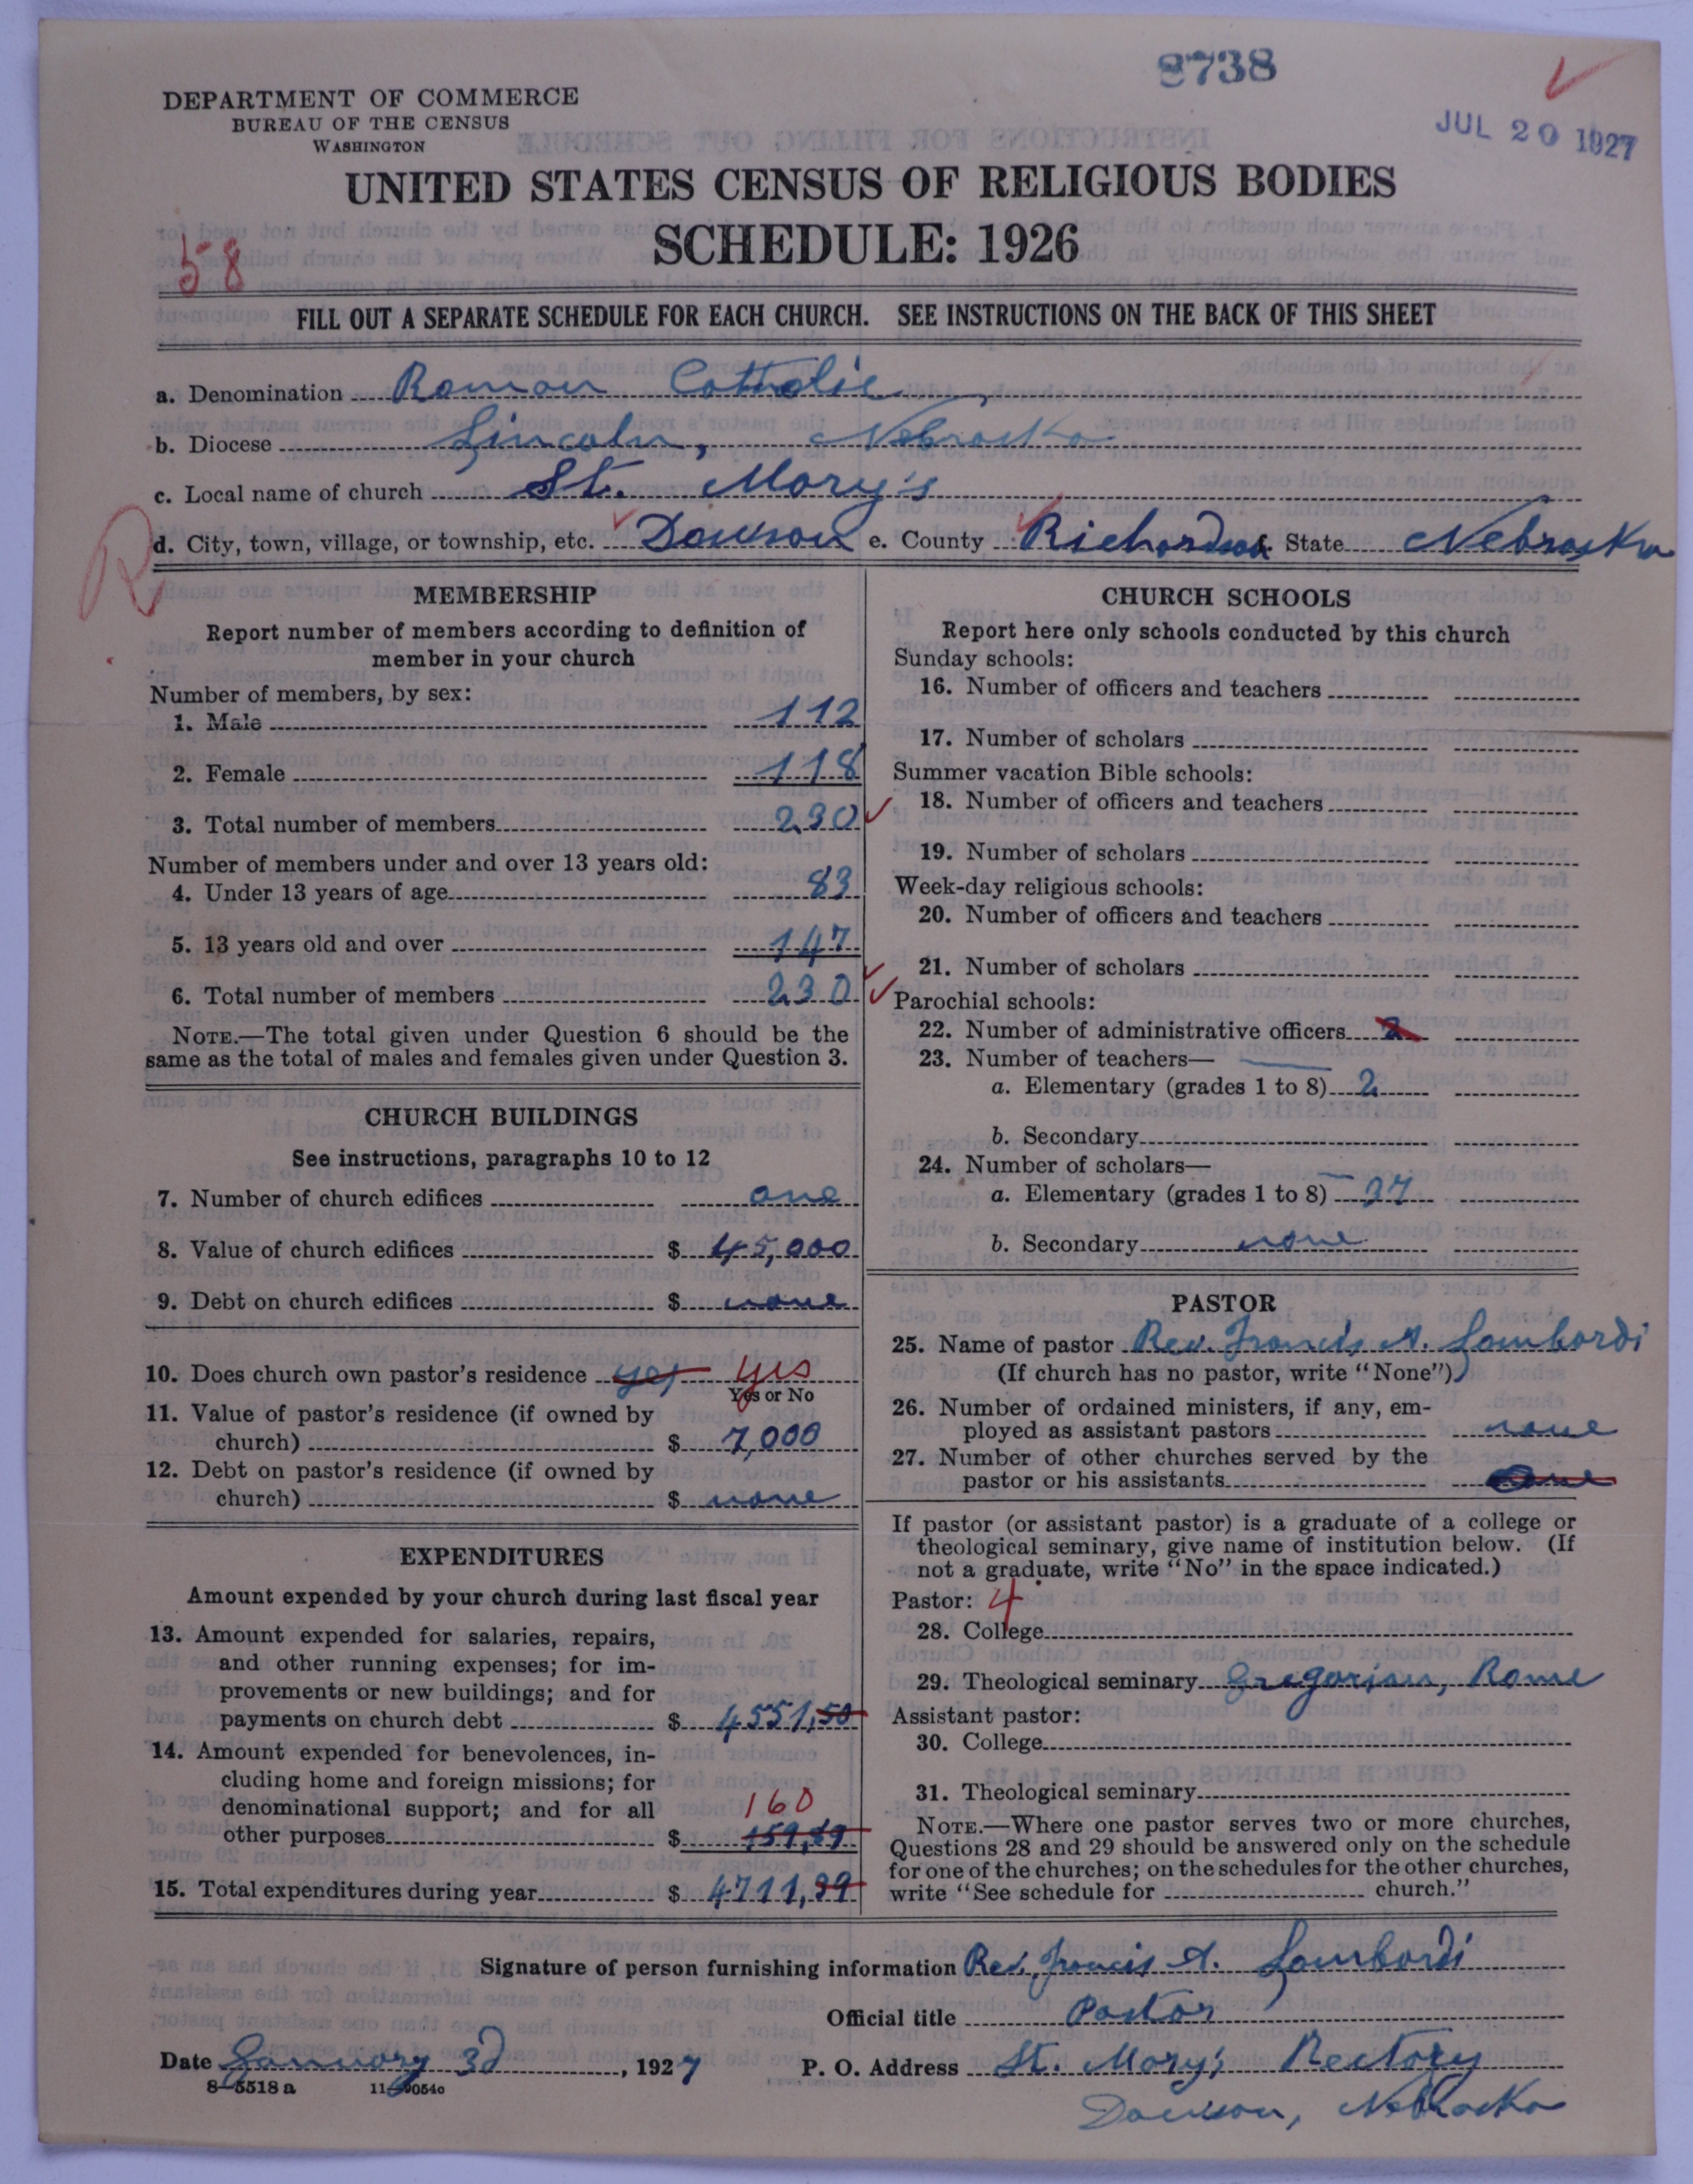 8738
JUL 20 1927
DEPARTMENT OF COMMERCE
BUREAU OF THE CENSUS
WASHINGTON
UNITED STATES CENSUS OF RELIGIOUS BODIES
SCHEDULE: 1926
58
FILL OUT A SEPARATE SCHEDULE FOR EACH CHURCH. SEE INSTRUCTIONS ON THE BACK OF THIS SHEET
a. Denomination Roman Catholic
b. Diocese Lincoln, Nebraska
c. Local name of church St. Mary's
R
d. City, town, village, or township, etc. Dawson e. County Richardson State Nebraska
MEMBERSHIP
Report number of members according to definition of
member in your church
Number of members, by sex:
1. Male 112
2. Female 118
3. Total number of members 230
Number of members under and over 13 years old:
4. Under 13 years of age 83
5. 13 years old and over 147
6. Total number of members 230
NOTE.—The total given under Question 6 should be the
same as the total of males and females given under Question 3.
CHURCH BUILDINGS
See instructions, paragraphs 10 to 12
7. Number of church edifices one
8. Value of church edifices $ 45,000
9. Debt on church edifices $ none
10. Does church own pastor's residence yes yes
Yes or No
11. Value of pastor's residence (if owned by
church) $ 7,000
12. Debt on pastor's residence (if owned by
church) $ none
EXPENDITURES
Amount expended by your church during last fiscal year
13. Amount expended for salaries, repairs,
and other running expenses; for im-
provements or new buildings; and for
payments on church debt $ 4551,50
14. Amount expended for benevolences, in-
cluding home and foreign missions; for
denominational support; and for all 160
other purposes $ 159,89
15. Total expenditures during year $ 4711,39
CHURCH SCHOOLS
Report here only schools conducted by this church
Sunday schools:
16. Number of officers and teachers
17. Number of scholars
Summer vacation Bible schools:
18. Number of officers and teachers
19. Number of scholars
Week-day religious schools:
20. Number of officers and teachers
21. Number of scholars
Parochial schools:
22. Number of administrative officers 2
23. Number of teachers—
a. Elementary (grades 1 to 8) 2
b. Secondary
24. Number of scholars—
a. Elementary (grades 1 to 8) 37
b. Secondary none
PASTOR
25. Name of pastor Rev. Francis A. Lombardi
(If church has no pastor, write "None")
26. Number of ordained ministers, if any, em-
ployed as assistant pastors none
27. Number of other churches served by the
pastor or his assistants
If pastor (or assistant pastor) is a graduate of a college or
theological seminary, give name of institution below. (If
not a graduate, write "No" in the space indicated.)
Pastor: 4
28. College
29. Theological seminary Gregorian, Rome
Assistant pastor:
30. College
31. Theological seminary
NOTE.—Where one pastor serves two or more churches,
Questions 28 and 29 should be answered only on the schedule
for one of the churches; on the schedules for the other churches,
write "See schedule for church."
Signature of person furnishing information Rev. Francis A. Lombardi
Official title Pastor
Date January 3d, 1927 P. O. Address St. Mary's Rectory
8-5518 a
Dawson, Nebraska